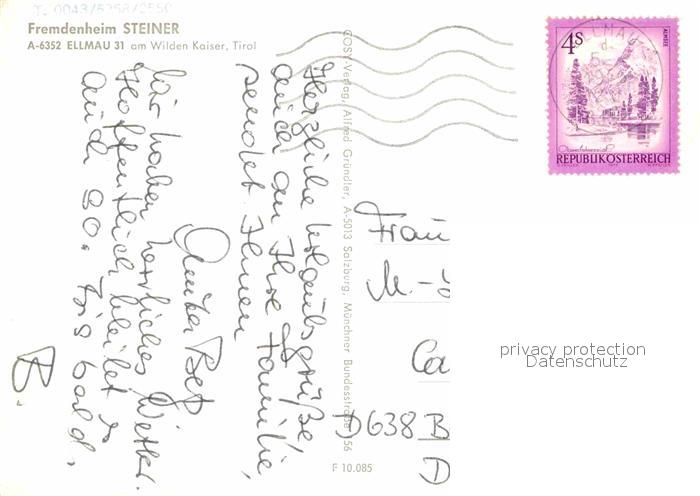 T. 0043/5358/2550
Fremdenheim STEINER
A-6352 ELLMAU 31 am Wilden Kaiser, Tirol
Herzliche Urlaubsgrüße,
auch an Ihre Familie,
sendet Ihnen
Günter
Wir haben herrliches Wetter.
Hoffentlich bleibt's
auch so. Bis bald,
B.
COSY-Verlag, Alfred Gründler, A-5013 Salzburg, Münchner Bundesstraße 156
F 10.085
ELLMAU
4S
ALMSEE
REPUBLIK ÖSTERREICH
Frau
M-
Ca
D638 B
D
privacy protection
Datenschutz